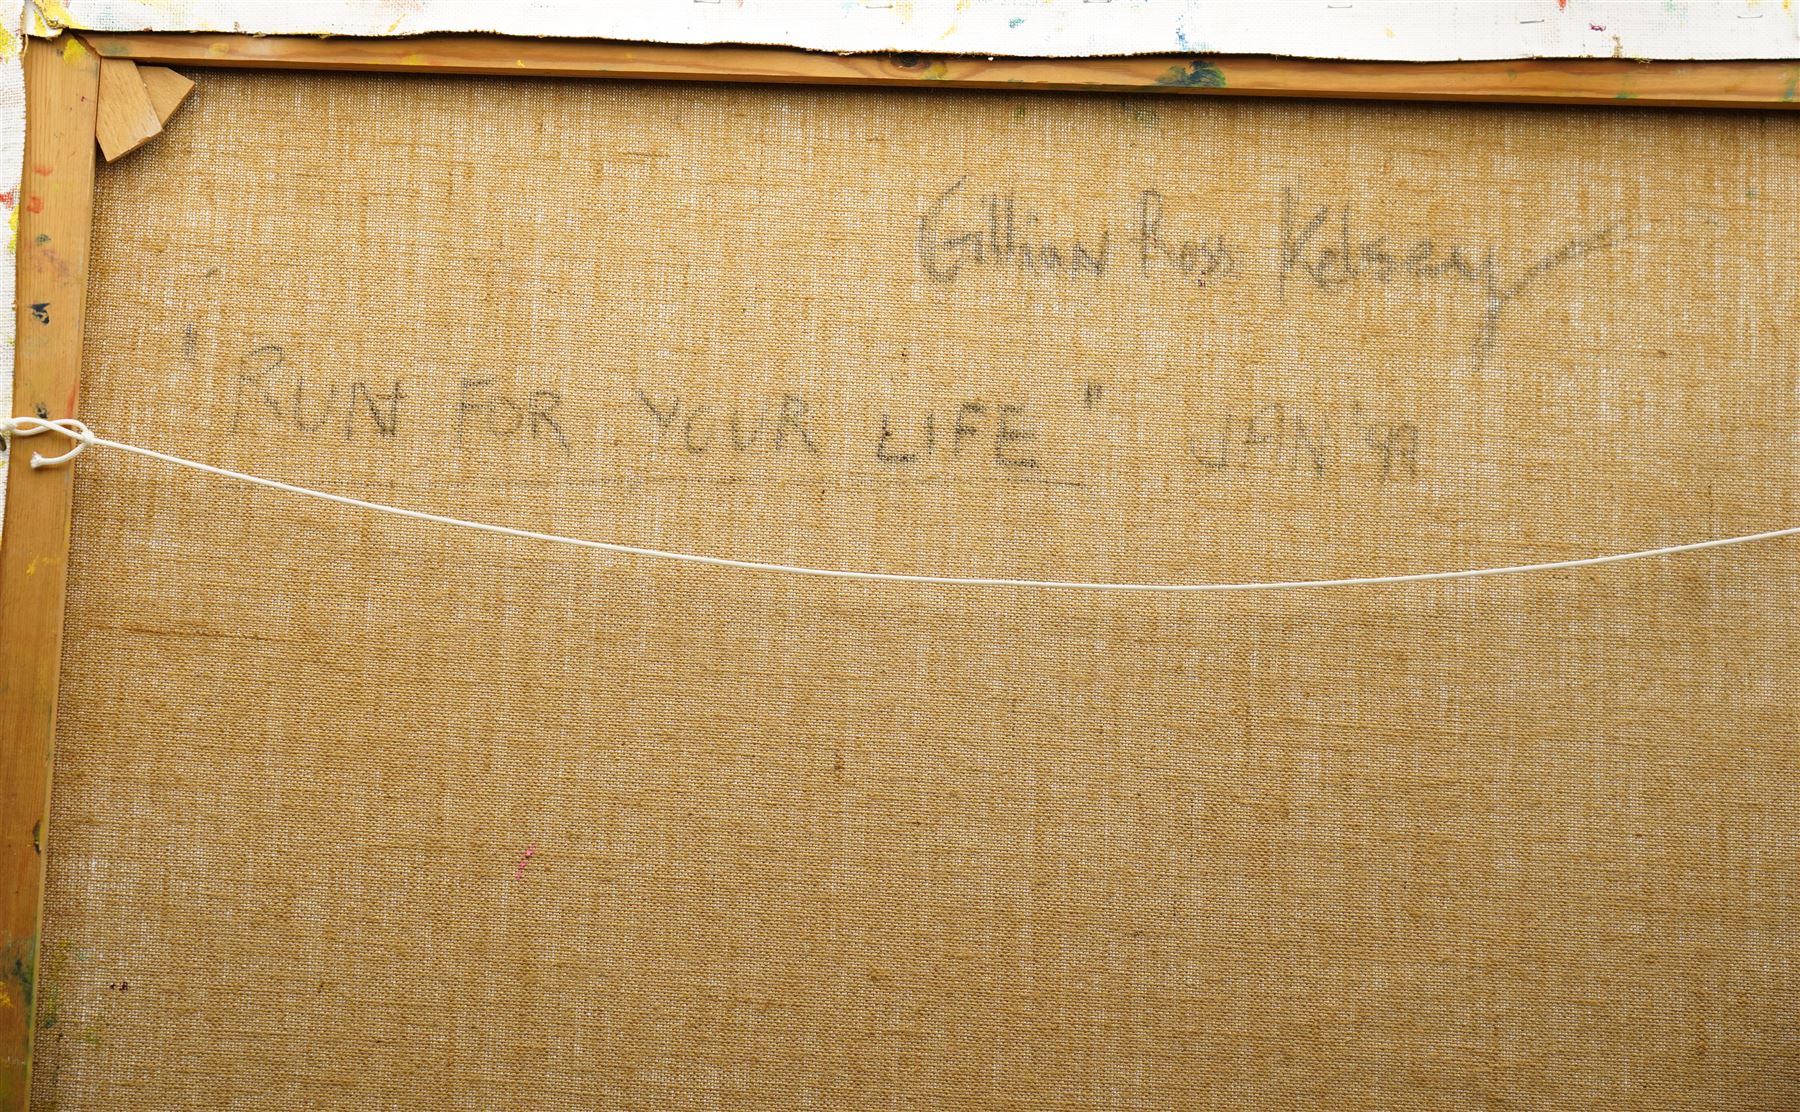 Gillian Ross Kelsey
"RUN FOR YOUR LIFE" JAN